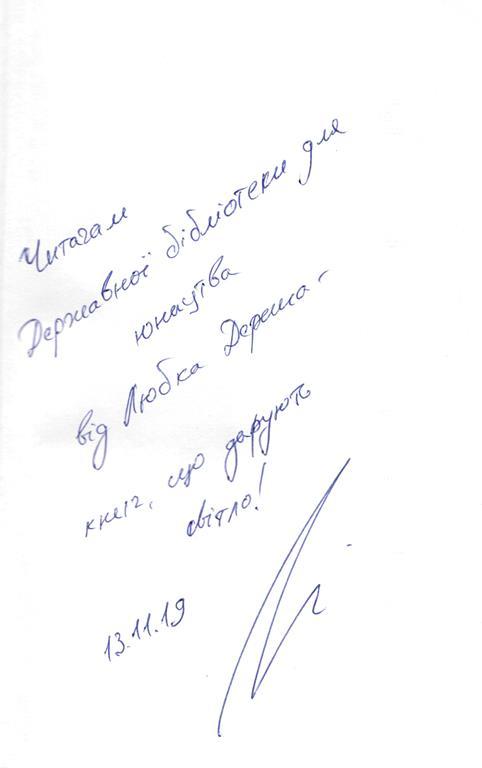 Читачам
Державної бібліотеки для
юнацтва
від Любка Дереша -
книг, що дарують
світло!
13.11.19